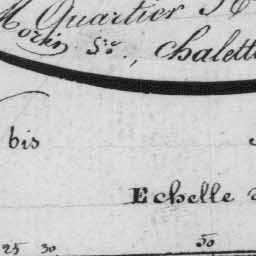 Quartier
Sr., Chalette
bis
Echelle
25 30 50